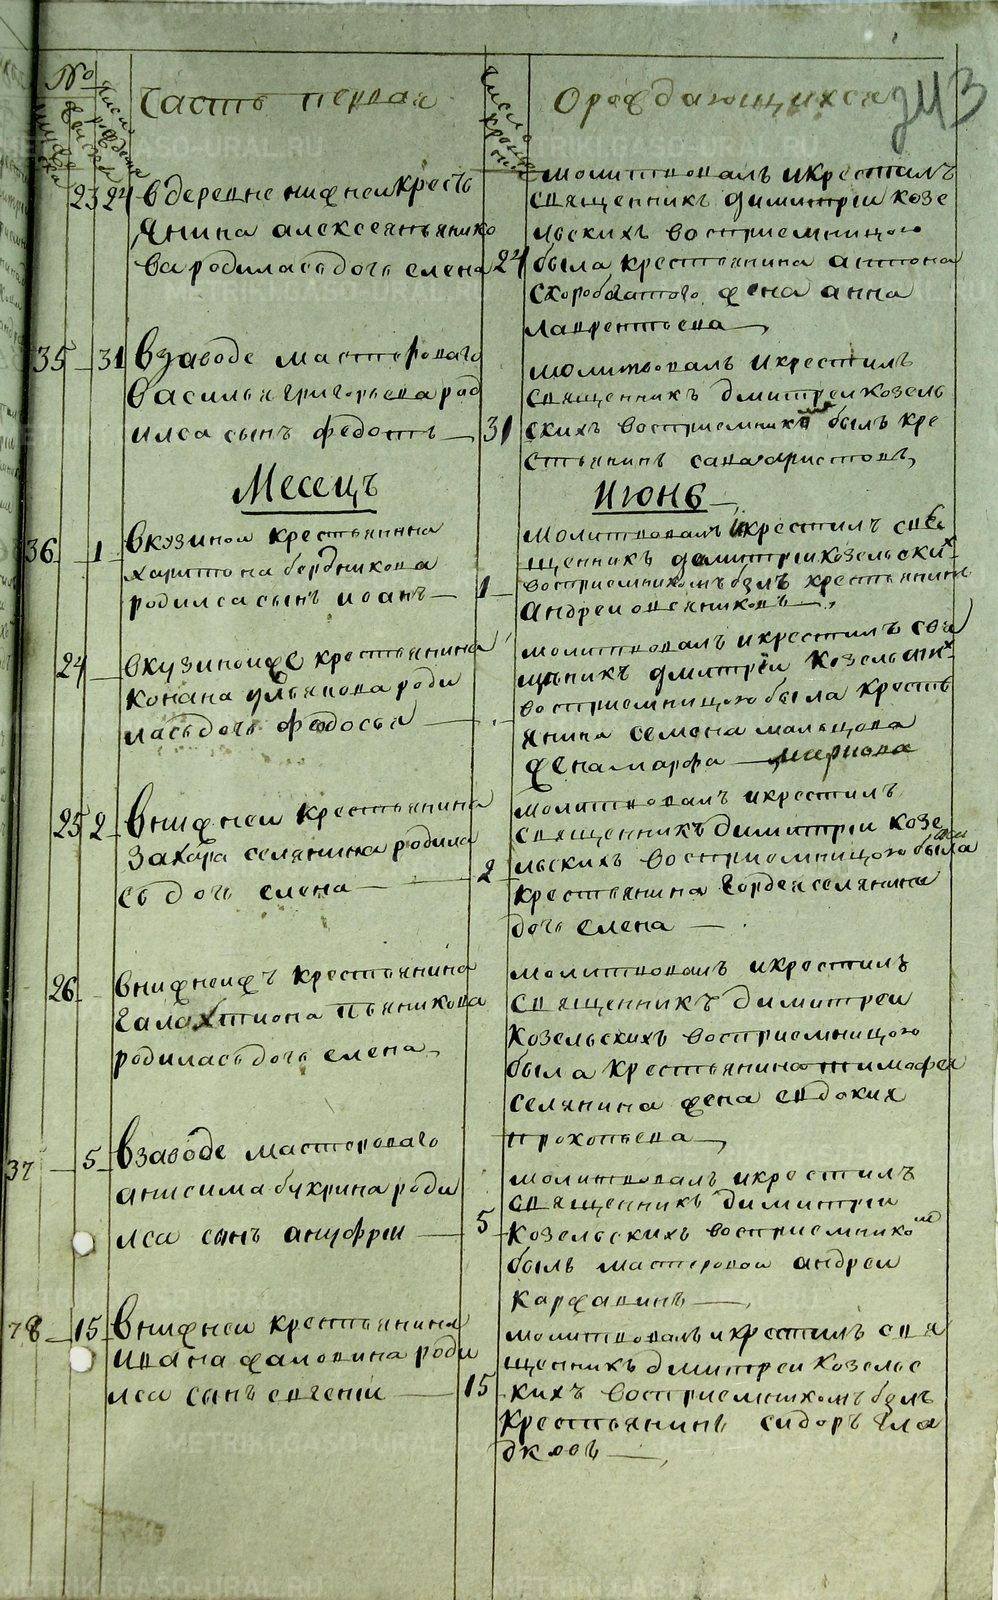 Часть первая
О рождающихся
243
23 24 в деревне нижней кресть
янина алексея пьянико
ва родилась дочь елена 24
молитвовалъ и крестилъ
священникъ димитреи козе
льскихъ восприемницою
была крестьянина антона
скоробогатого жена анна
лаврентьева
35 31 в заводе мастероваго
василья григорьева род
илса сынъ федотъ 31
молитвовалъ и крестилъ
священникъ дмитреи козель
скихъ восприемникомъ былъ кре
стьянинъ сава аристовъ
Месецъ
Июнь
36 1 в кузинои крестьянина
харитона бердникова
родилса сынъ иоанъ 1
молитвовалъ и крестилъ свя
щенникъ димитреи козельских
восприемникомъ былъ крестьянинъ
андреи овсяниковъ
24 в кузинои же крестьянина
конана ульянова роди
лась дочь федосья
молитвовалъ и крестилъ свя
щеникъ дмитреи козельских
восприемницою была кресть
янина семена мальцова
жена марфа
25 2 в нижнеи крестьянина
захара селянина родила
сь дочь елена 2
молитвовалъ и крестилъ
священникъ димитреи козе
льскихъ восприемницою была
крестьянина гордея селянина
дочь елена
26 в нижнеи жъ крестьянина
галахтиона пьяникова
родилась дочь елена
молитвовалъ и крестилъ
священникъ димитреи
козельскихъ восприемницою
была крестьянина тимофея
селянина жена евдокия
прокопьева
37 5 в заводе мастероваго
анисима бухрина роди
лса сынъ ануфреи 5
молитвовалъ и крестилъ
священникъ димитреи
козельскихъ восприемникомъ
былъ мастеровои андреи
каржавинъ
38 15 в нижнеи крестьянина
ивана жаловина роди
лса сынъ евгении 15
молитвовалъ и крестилъ свя
щенникъ дмитреи козельс
кихъ восприемникомъ былъ
крестьянинъ сидоръ гла
дковъ